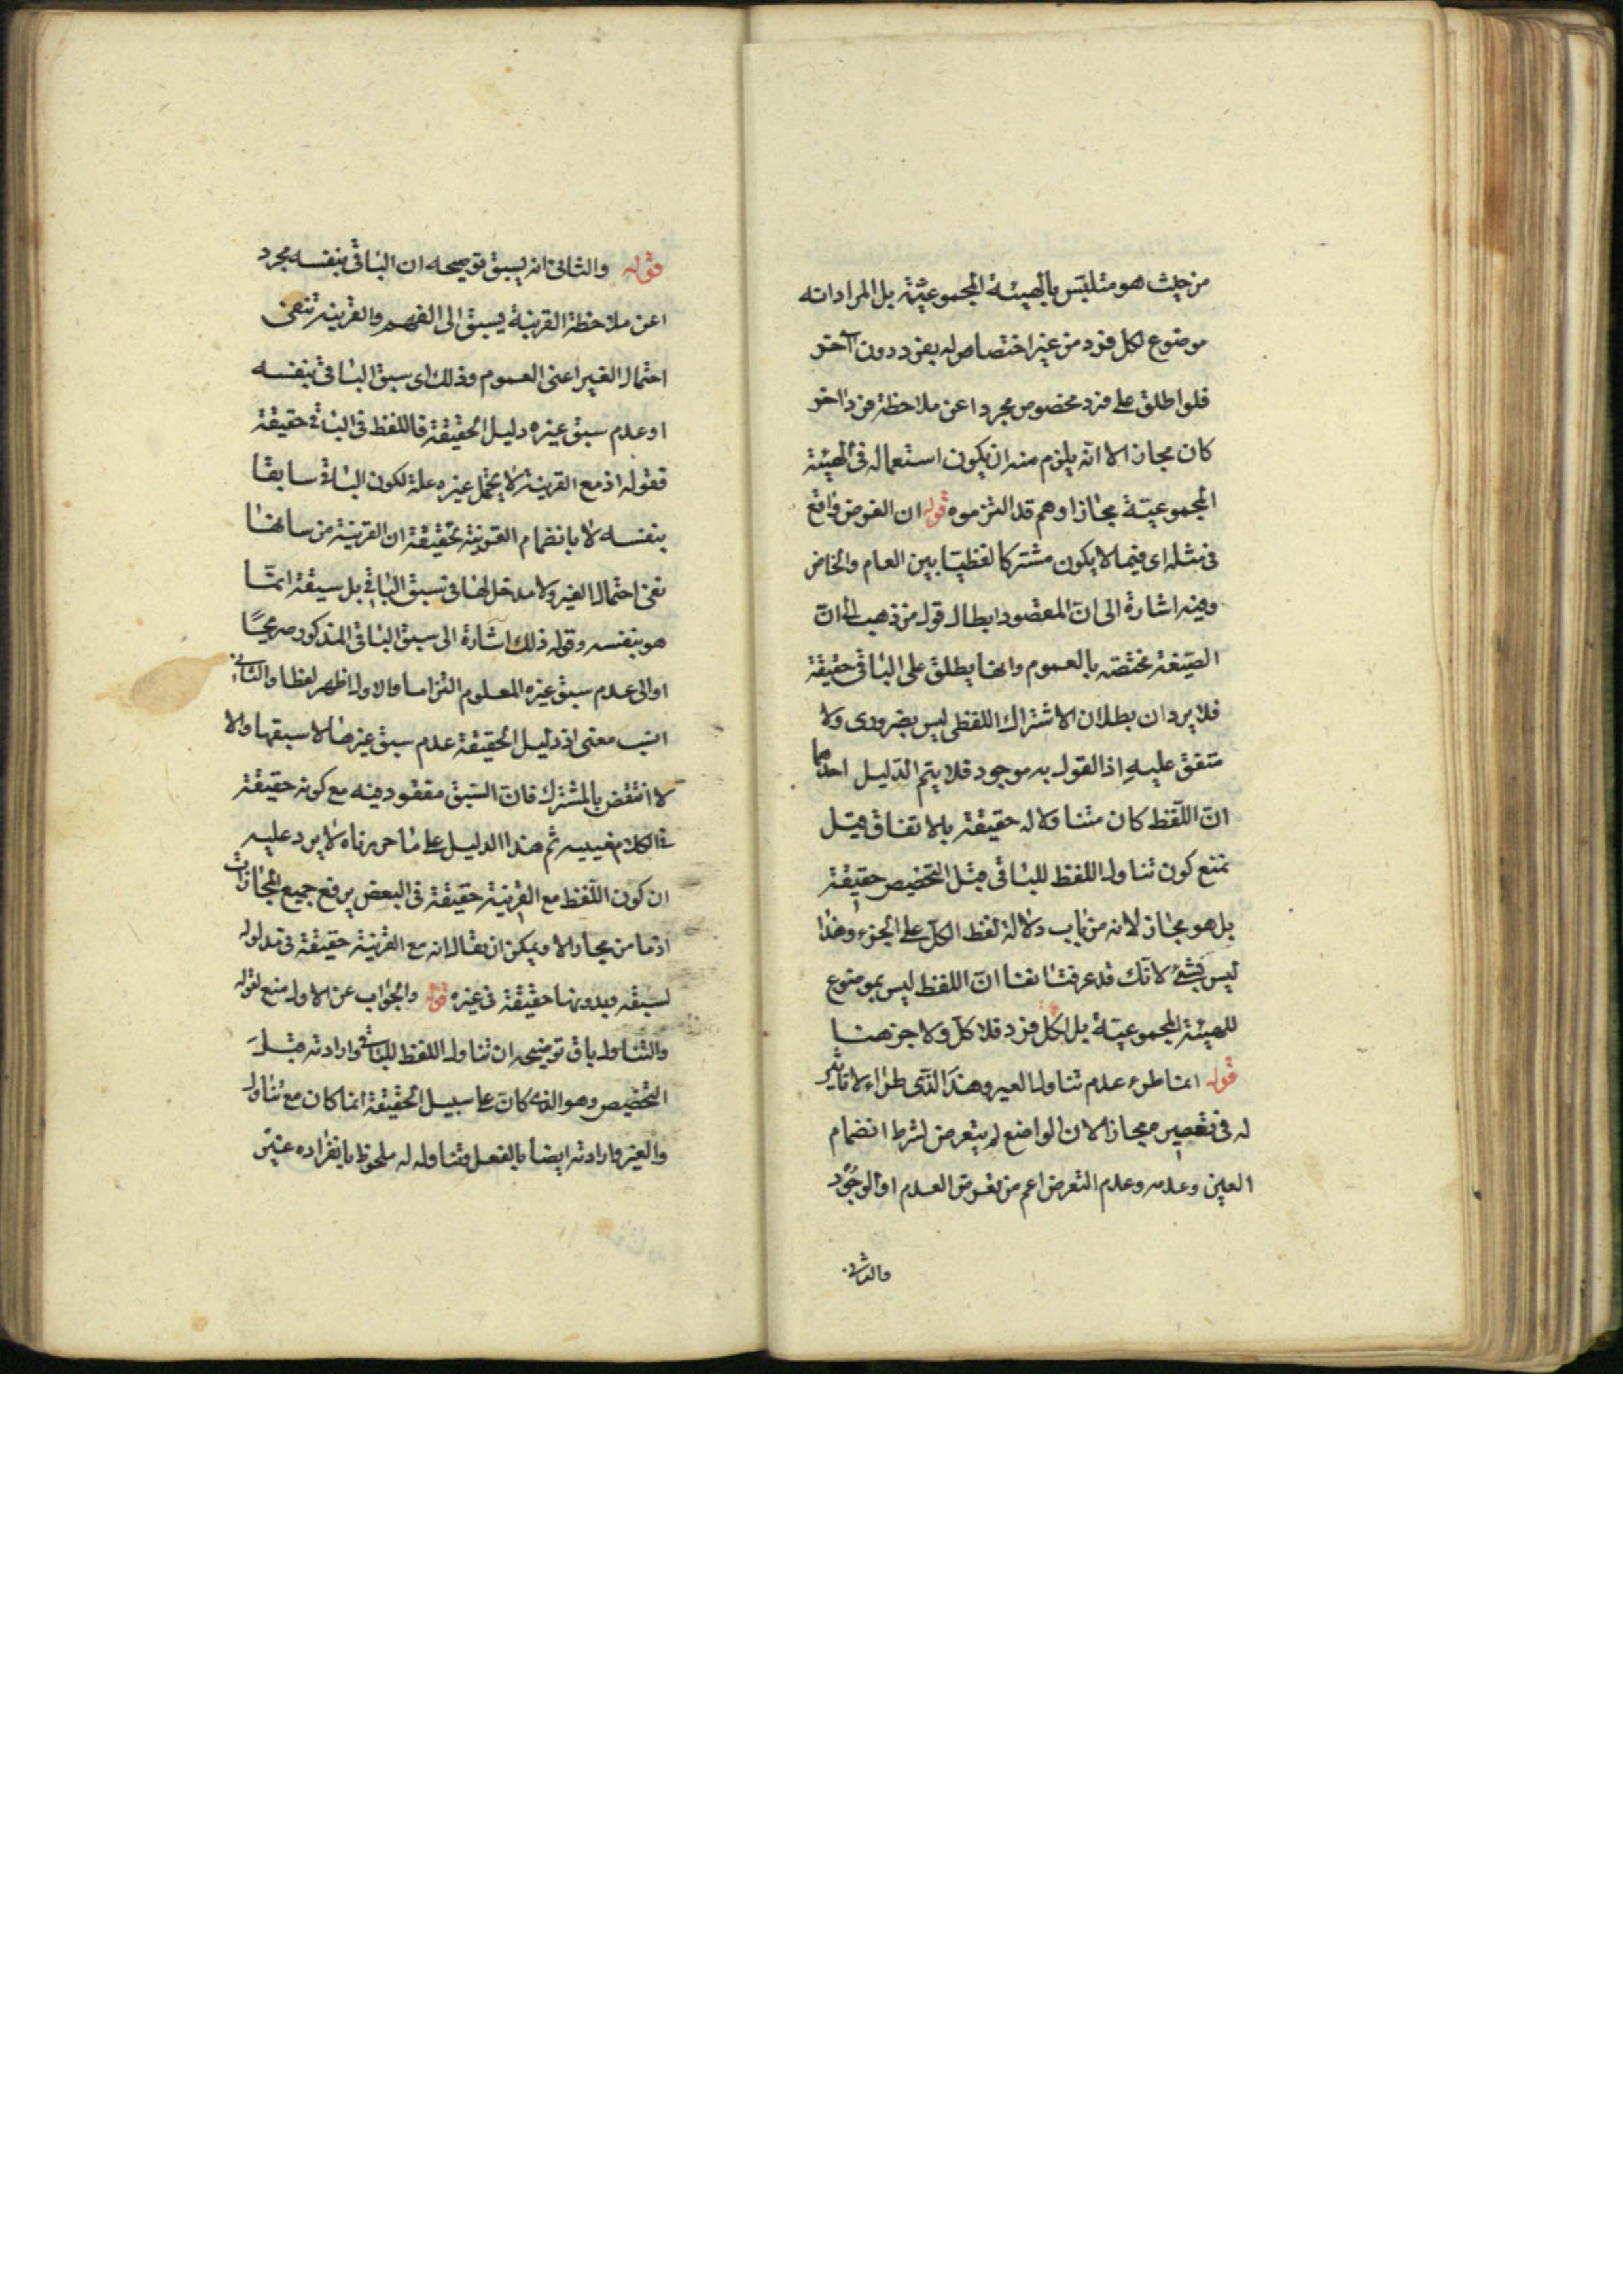 من حيث هو متلبس بالهيئة المجموعية بل المراد انه
موضوع لكل فرد من غير اختصاص له بفرد دون آخر
فلو اطلق على فرد مخصوص مجردا عن ملاحظة فرد اخر
كان مجازا الا انه يلزم منه ان يكون استعماله في الهيئة
المجموعية مجازا وهم قد التزموه قوله ان الفرض واقع
في مثله اى فيما لا يكون مشتركا لفظيا بين العام والخاص
وفيه اشارة الى ان المقصود ابطال قول من ذهب الى ان
الصيغة مختصة بالعموم وانها يطلق على الباقى حقيقة
فلا يرد ان بطلان الاشتراك اللفظى ليس بضرورى ولا
متفق عليه اذ القول به موجود فلا يتم الدليل احدهما
ان اللفظ كان متناولا له حقيقة بالاتفاق قيل
نمنع كون تناول اللفظ للباقى قبل التخصيص حقيقة
بل هو مجاز لانه من باب دلالة لفظ الكل على الجزء وهذا
ليس بشئ لانك قد عرفت انفا ان اللفظ ليس بموضوع
للهيئة المجموعية بل لكل فرد فلا كل ولا جزء هنا
قوله انما طرء عدم تناول الغير وهذا الذى طراء لا تاثير
له في تغيير مجاز الان الواضع لم يتعرض لشرط انضمام
الغير وعدمه وعدم التعرض اعم من تعرض العدم او الوجود
قوله والثانى انه يسبق توضيحه ان الباقى بنفسه مجرد
اعن ملاحظة القرينة يسبق الى الفهم والقرينة تنفى
احتمال الغير اعنى العموم وذلك اى سبق الباقى بنفسه
او عدم سبق غيره دليل الحقيقة فاللفظ في الباقى حقيقة
فقوله اذ مع القرينة لا يحتمل غيره علة لكون الباقى سابقا
بنفسه لا بانضمام القرينة تحقيقه ان القرينة من شانها
نفى احتمال الغير ولا مدخل لها في سبق الباقى بل سبقه انما
هو بنفسه وقوله ذلك اشارة الى سبق الباقى المذكور صريحا
او الى عدم سبق غيره المعلوم التزاما والاول اظهر لفظا والثانى
انسب معنى اذ دليل الحقيقة عدم سبق غيرها لا سبقها والا
لانتقض بالمشترك فان السبق مفقود فيه مع كونه حقيقة
ثم هذا الدليل على ما حررناه لا يرد عليه
ان كون اللفظ مع القرينة حقيقة في البعض يرفع جميع المجازات
اذ ما من مجاز الا ويمكن ان يقال انه مع القرينة حقيقة في مدلوله
لسبقه وبدونها حقيقة في غيره قوله والجواب عن الاول منع لقوله
والتناول باق توضيحه ان تناول اللفظ للباقى وارادته قبل
التخصيص وهو الذى كان على سبيل الحقيقة انما كان مع تناول
والغير وارادته ايضا بالفعل فتناوله له ملحوظ بانفراده عنين